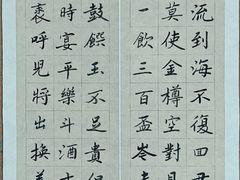 流到海不復回君
莫使金樽空對月
一飲三百盃岑
鼓饌玉不足貴但
時宴平樂斗酒
裘呼兒將出換美